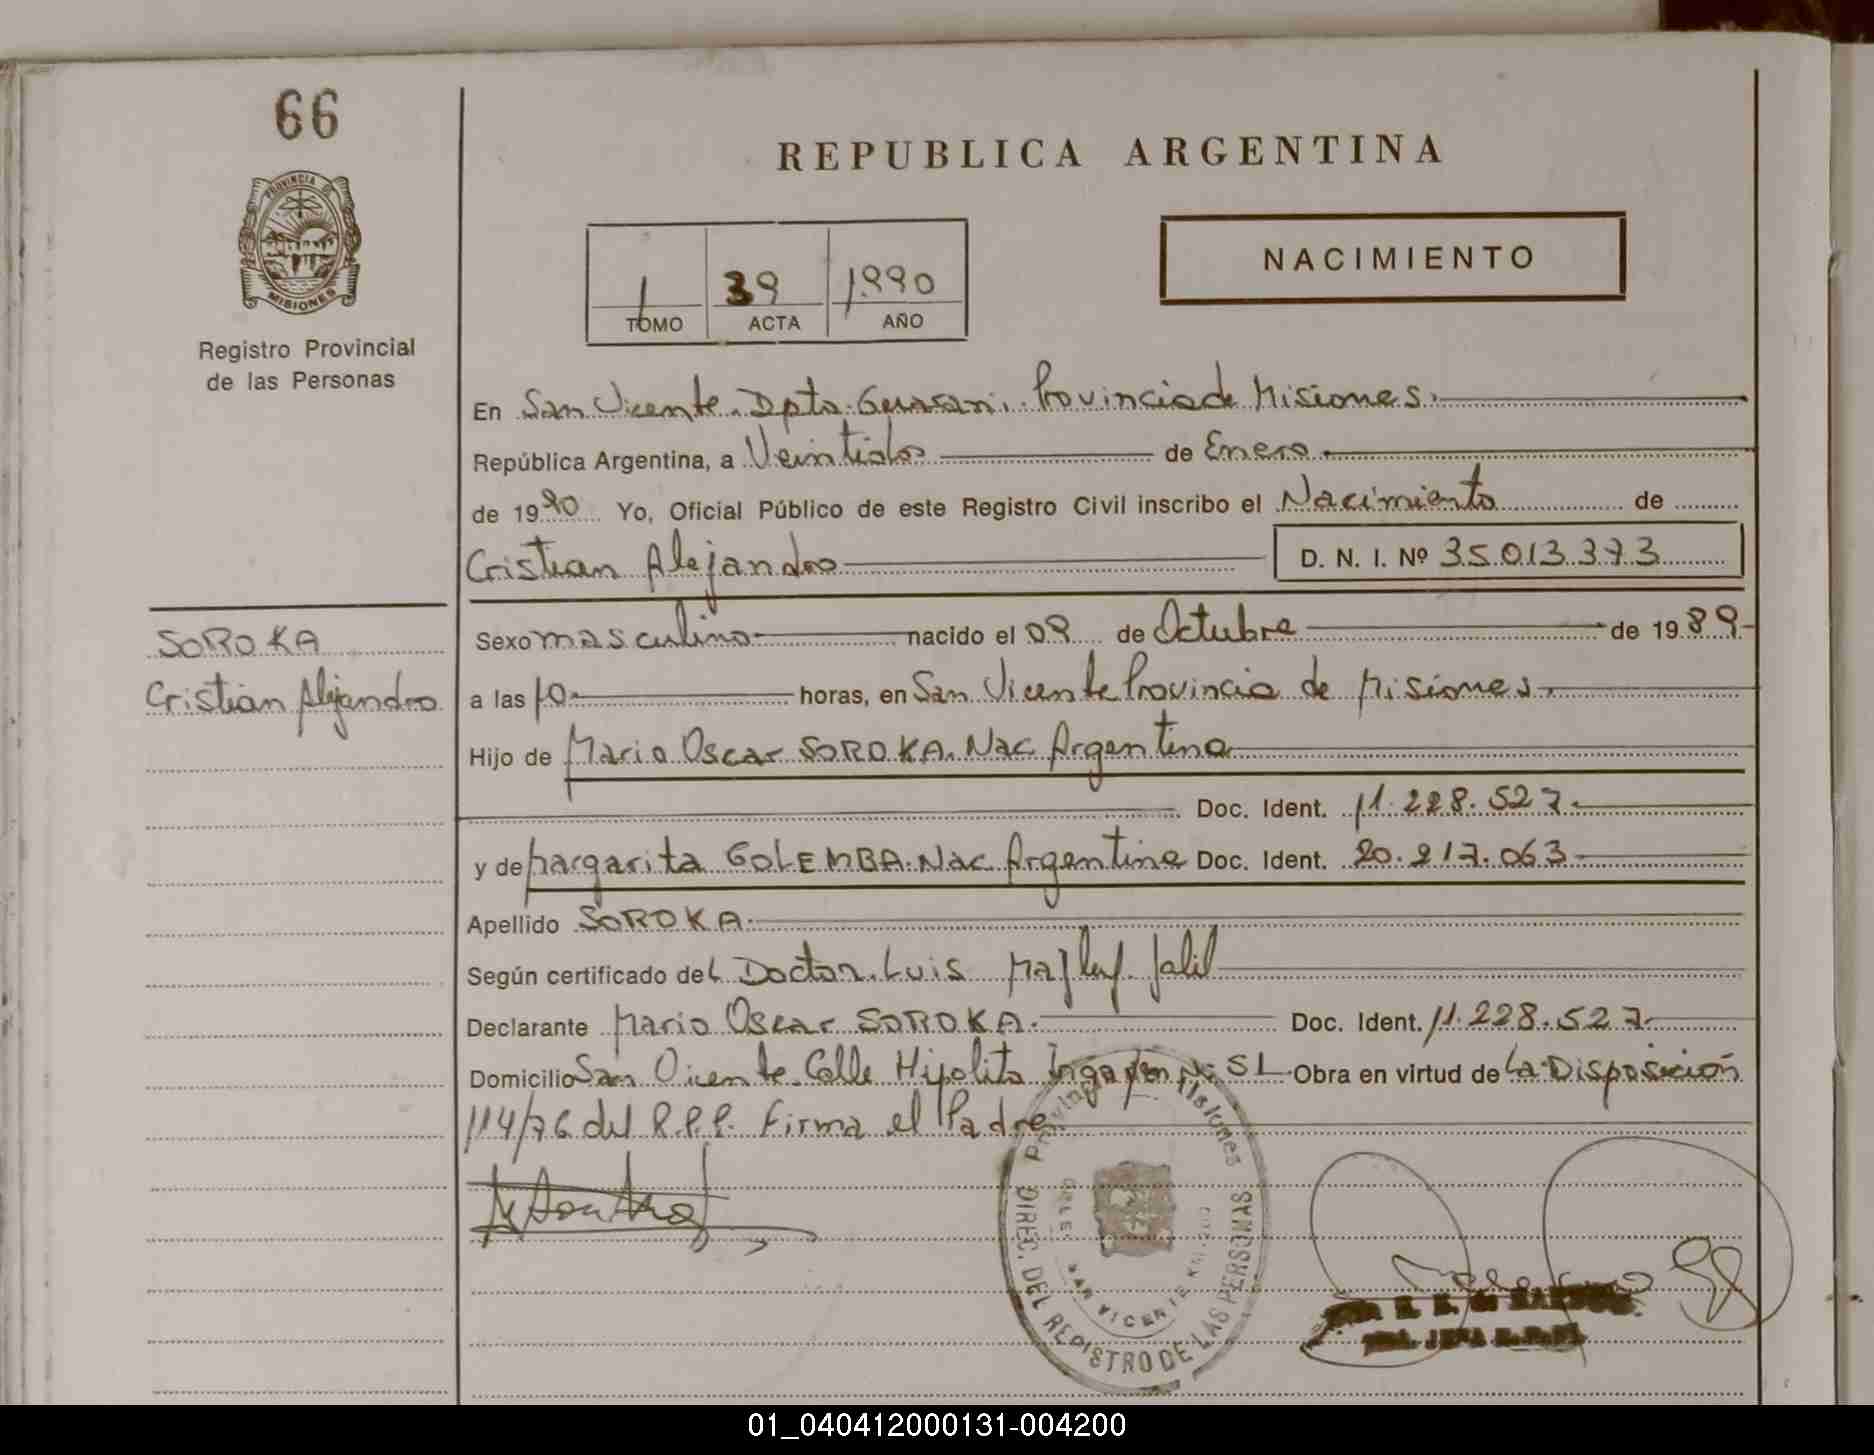 66
REPUBLICA ARGENTINA
PROVINCIA DE
MISIONES
Registro Provincial
de las Personas
1 39 1990
TOMO ACTA AÑO
NACIMIENTO
En San Vicente. Dpto. Guarani. Provincia de Misiones.
República Argentina, a Veintidos de Enero
de 1990 Yo, Oficial Público de este Registro Civil inscribo el Nacimiento de
Cristian Alejandro D. N. I. Nº 35.013.373
SOROKA
Cristian Alejandro
Sexo masculino nacido el 09 de Octubre de 1989
a las 10 horas, en San Vicente Provincia de Misiones.
Hijo de Mario Oscar SOROKA. Nac Argentina
Doc. Ident. 11.228.527.
y de Margarita GOLEMBA. Nac Argentina Doc. Ident. 20.217.063
Apellido SOROKA
Según certificado del Doctor. Luis Jalil
Declarante Mario Oscar SOROKA. Doc. Ident. 11.228.527
Domicilio San Vicente. Calle Hipolito Obra en virtud de La Disposición
114/76 del R.P.P. Firma el Padre
Provincia Misiones
DIREC. DEL REGISTRO DE LAS PERSONAS
SAN VICENTE
01_040412000131-004200